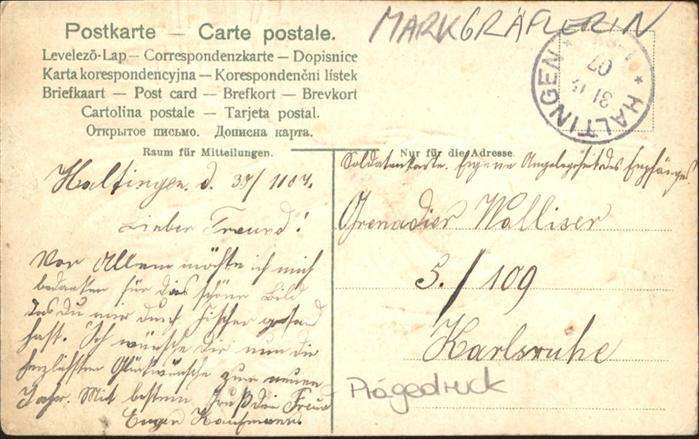 MARKGRÄFLERIN
Postkarte — Carte postale.
Levelező-Lap — Correspondenzkarte — Dopisnice
Karta korespondencyjna — Korespondenční lístek
Briefkaart — Post card — Brefkort — Brevkort
Cartolina postale — Tarjeta postal.
Открытое письмо. Дописна карта.
* HALTINGEN *
31 12
07
Raum für Mitteilungen.
Nur für die Adresse
Haltingen, d.
Lieber Freund!
Vor Allem möchte ich mich
bedanken für das schöne Bild
das du mir durch Fischer gesand
hast. Ich wünsche Dir nun die
herzlichsten Glückwünsche zum neuen
Jahr. Mit bestem Gruß Dein Freund
Eugen Kaufmann
Soldatenkarte. Eigene Angelegenheit des Empfängers
Grenadier Walliser
5./109
Karlsruhe
Prägedruck